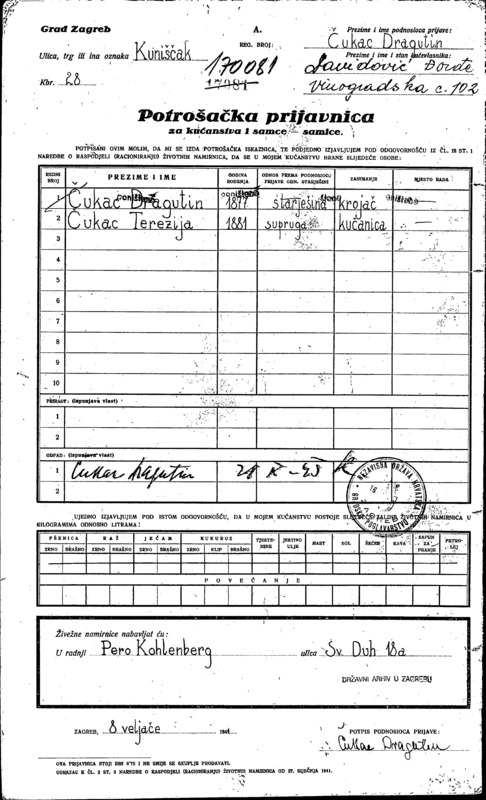 Grad Zagreb
A.
Prezime i ime podnosioca prijave:
Ulica, trg ili ina oznaka Kuniščak
REG. BROJ:
Čukac Dragutin
170081
Prezime i ime i stan kućevlasnika:
Kbr. 28
17081
Davidović Đorđe
vinogradska c. 102
Potrošačka prijavnica
za kućanstva i samce – samice.
POTPISANI OVIM MOLIM, DA MI SE IZDA POTROŠAČKA ISKAZNICA, TE PODJEDNO IZJAVLJUJEM POD ODGOVORNOŠĆU IZ ČL. 15 ST. 1
NAREDBE O RASPODJELI (RACIONIRANJU) ŽIVOTNIH NAMIRNICA, DA SE U MOJEM KUĆANSTVU HRANE SLIJEDEĆE OSOBE:
REDNI BROJ PREZIME I IME GODINA ROĐENJA ODNOS PREMA PODNOSIOCU PRIJAVE ODN. STARJEŠINI ZANIMANJE MJESTO RADA
1 Čukac Dragutin 1877 starješina krojač
2 Čukac Terezija 1881 supruga kućanica
3
4
5
6
7
8
9
10
PRIRAST: (ispunjava vlast)
1
2
OTPAD: (ispunjava vlast)
1 Čukac Dragutin
2
NEZAVISNA DRŽAVA HRVATSKA
GRADSKO POGLAVARSTVO
UJEDNO IZJAVLJUJEM POD ISTOM ODGOVORNOŠĆU, DA U MOJEM KUĆANSTVU POSTOJE ZALIHE ŽIVOTNIH NAMIRNICA U
KILOGRAMIMA ODNOSNO LITRAMA:
PŠENICA RAŽ JEČAM KUKURUZ TJESTENINE JESTIVO ULJE MAST SOL ŠEĆER KAVA SAPUN ZA PRANJE PETROLEJ
ZRNO BRAŠNO ZRNO BRAŠNO ZRNO BRAŠNO ZRNO KLIP BRAŠNO
POVEĆANJE
Živežne namirnice nabavljat ću:
U radnji Pero Kohlenberg ulica Sv. Duh 18a
DRŽAVNI ARHIV U ZAGREBU
ZAGREB, 8 veljače 1941
POTPIS PODNOSIOCA PRIJAVE:
Čukac Dragutin
OVA PRIJAVNICA STOJI DIN 0'75 I NE SMIJE SE SKUPLJE PRODAVATI.
OBRAZAC K ČL. 2 ST. 3 NAREDBE O RASPODJELI (RACIONIRANJU) ŽIVOTNIH NAMIRNICA OD 27. SIJEČNJA 1941.